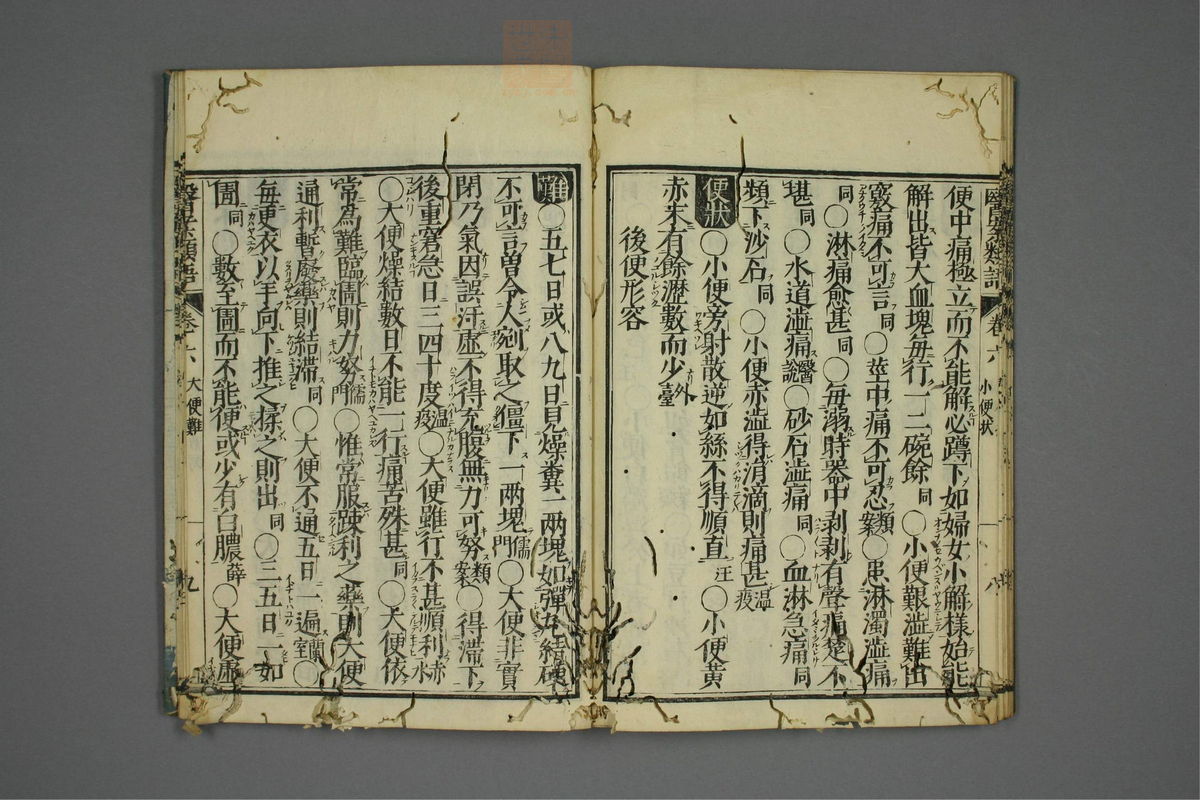 便中痛極立而不能解必蹲下如婦女小解樣始能
解出皆大血塊每行一二碗餘 同 ○小便艱澁難出
竅痛不可言 同 ○莖中痛不可忍 類案 ○患淋濁澁痛
同 ○淋痛愈甚 同 ○每溺時器中剥剥有聲痛楚不
堪 同 ○水道澁痛 醫說 ○砂石澁痛 同 ○血淋急痛 同
頻下沙石 同 ○小便赤澁得涓滴則痛甚 温疫
便狀 ○小便旁射散逆如絲不得順直 汪 ○小便黄
赤末有餘瀝數而少 外臺
後便形容
難 ○五七日或八九日見燥糞一兩塊如彈丸結硬
不可言曽令人剜取之殭下一兩塊 儒門 ○大便非實
閉乃氣因誤汗虛不得充腹無力可努 類案 ○得滯下
後重窘急日三四十度 温疫 ○大便雖行不甚順利 赤水
○大便燥結數日不能一行痛苦殊甚 同 ○大便依
常爲難臨圊則力努 儒門 ○惟常服踈利之藥則大便
通利暫廢藥則結滯 同 ○大便不通五日一遍 蘭室 ○
每更衣以手向下推之揉之則出 同 ○三五日一如
圊 同 ○數至圊而不能便或少有白膿 薛 ○大便虛
小便状
八
卷十六
大便難
九